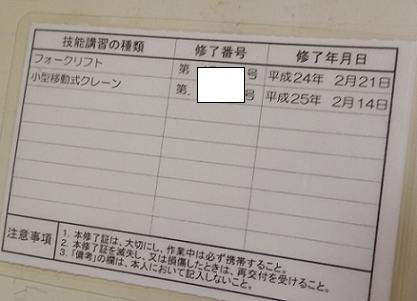 技能講習の種類 修了番号 修了年月日
フォークリフト 第 号 平成24年 2月21日
小型移動式クレーン 第. 号 平成25年 2月14日
注意事項
1. 本修了証は、大切にし、作業中は必ず携帯すること。
2. 本修了証を滅失し、又は損傷したときは、再交付を受けること。
3. 「備考」の欄は、本人において記入しないこと。